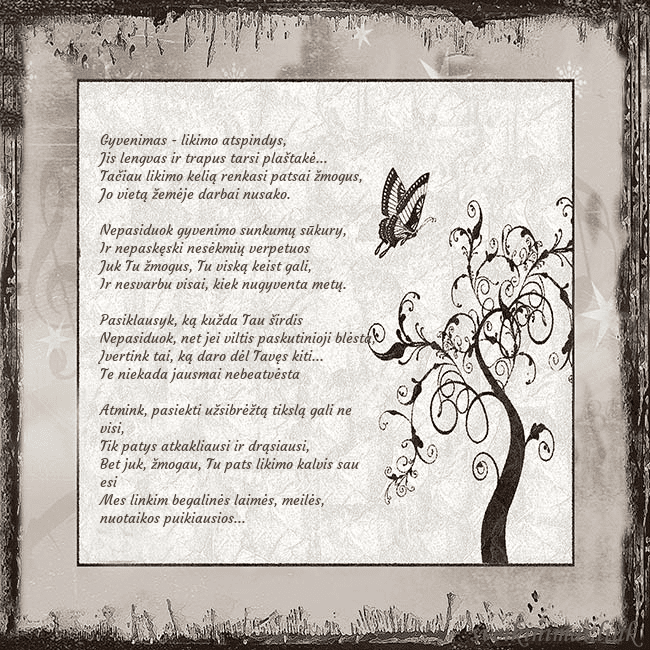 Gyvenimas - likimo atspindys,
Jis lengvas ir trapus tarsi plaštakė...
Tačiau likimo kelią renkasi patsai žmogus,
Jo vietą žemėje darbai nusako.

Nepasiduok gyvenimo sunkumų sūkury,
Ir nepaskęski nesėkmių verpetuos
Juk Tu žmogus, Tu viską keist gali,
Ir nesvarbu visai, kiek nugyventa metų.

Pasiklausyk, ką kužda Tau širdis
Nepasiduok, net jei viltis paskutinioji blėsta,
Įvertink tai, ką daro dėl Tavęs kiti...
Te niekada jausmai nebeatvėsta

Atmink, pasiekti užsibrėžtą tikslą gali ne
visi,
Tik patys atkakliausi ir drąsiausi,
Bet juk, žmogau, Tu pats likimo kalvis sau
esi
Mes linkim begalinės laimės, meilės,
nuotaikos puikiausios...